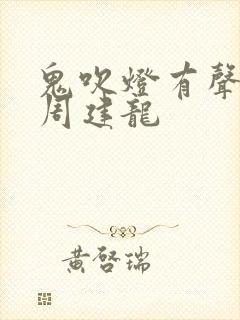 鬼吹燈有聲
周建龍
黃啓瑞